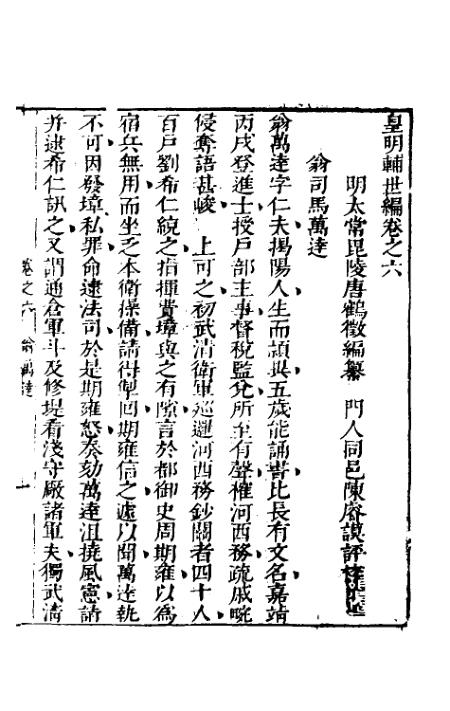 皇明輔世編卷之六
明太常毘陵唐鶴徵編纂 門人同邑陳睿謨評
翁司馬萬達
翁萬達字仁夫揭陽人生而頴異五歲能誦書比長有文名嘉靖
丙戌登進士授戶部主事督稅監兌所至有聲榷河西務疏戚畹
侵奪語甚峻 上可之初武清衛軍巡邏河西務鈔關者四十人
百戶劉希仁統之指揮黃璋與之有隙言於都御史周期雍以為
宿兵無用而坐乏本衛操備請得掣回期雍信之遽以聞萬達執
不可因發璋私罪命逮法司於是期雍怒奏劾萬達沮撓風憲請
并逮希仁訊之又謂通倉軍斗及修堤看淺守廠諸軍夫獨武清
卷之六 翁萬達
一